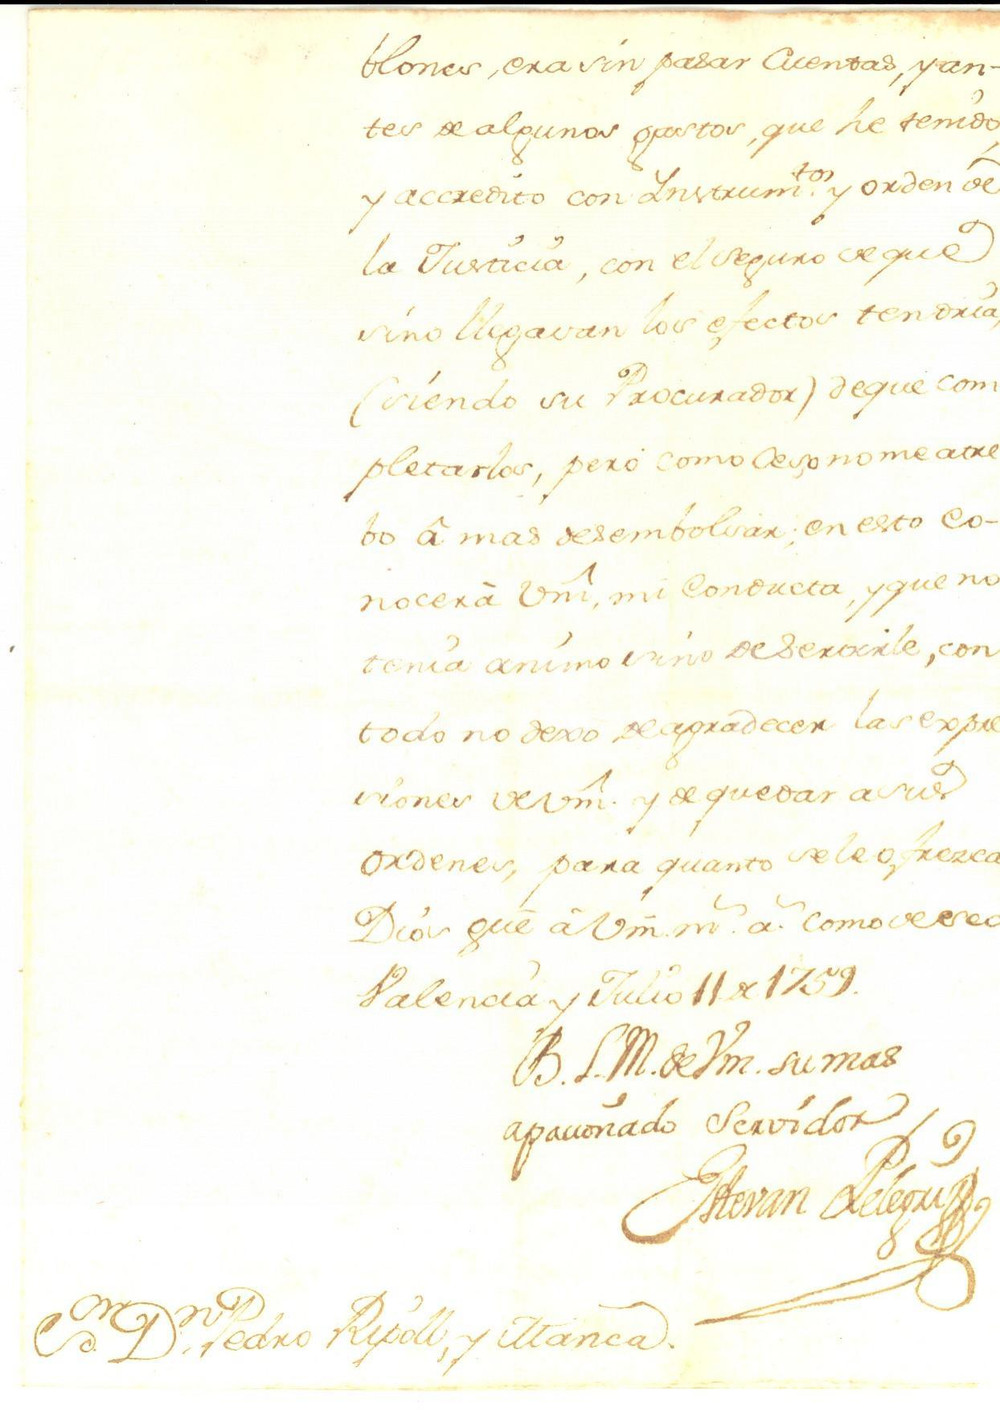 blones, era sin pasar Cuentas, y an-
tes de algunos gastos, que he tenido,
y accredito con Instrum.tos y orden de
la Justicia, con el seguro de que
sino llegavan los efectos tendria,
(siendo su Procurador) de que com
pletarlos, pero como no me atre
bo â mas desembolsar; en esto co-
nocerâ Vm̃, mi Conducta, y que no
tenia animo sino de servirle, con
todo no dexo de agradecer las expre
siones de Vm̃. y de quedar a sus
ordenes, para quanto se le ofrezca
Dios guê â Vm̃. m.s a.s como deseo
Valencia y Julio 11 de 1759.
B. L. M. de Vm. su mas
apasionado Servidor
Estevan Pelegri
S.or D.n Pedro Ripoll, y Manca.